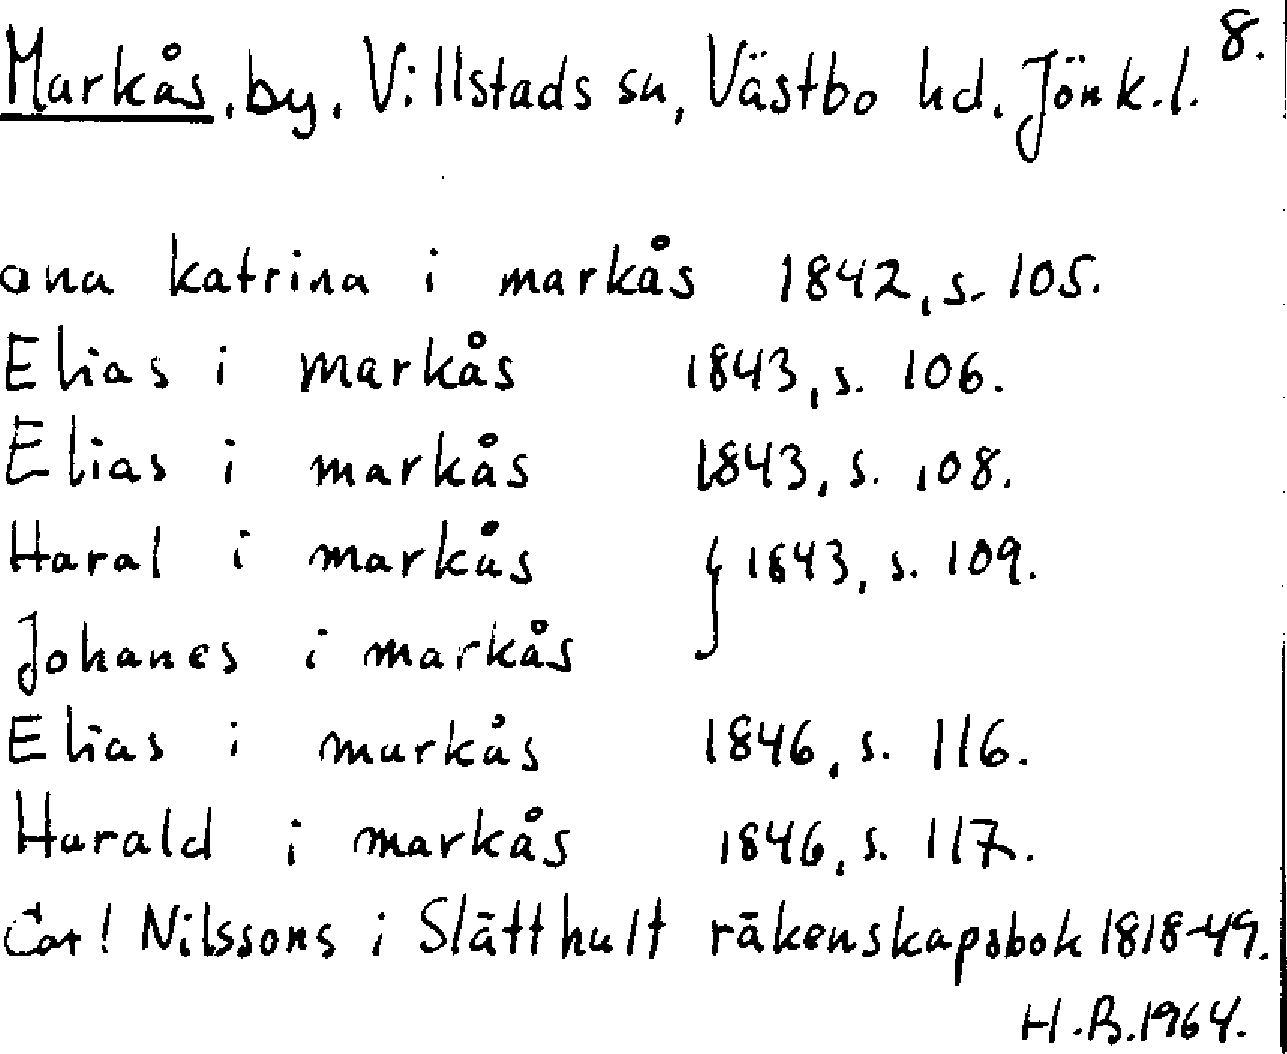 Markås, by, Villstads sn, Västbo hd. Jönk.l. 8.
ana katrina i markås 1842, s. 105.
Elias i markås 1843, s. 106.
Elias i markås 1843, s. 108.
Haral i markås } 1843, s. 109.
Johanes i markås
Elias i markås 1846, s. 116.
Harald i markås 1846, s. 117.
Carl Nilssons i Slätthult räkenskapsbok 1818-49.
H.B. 1964.